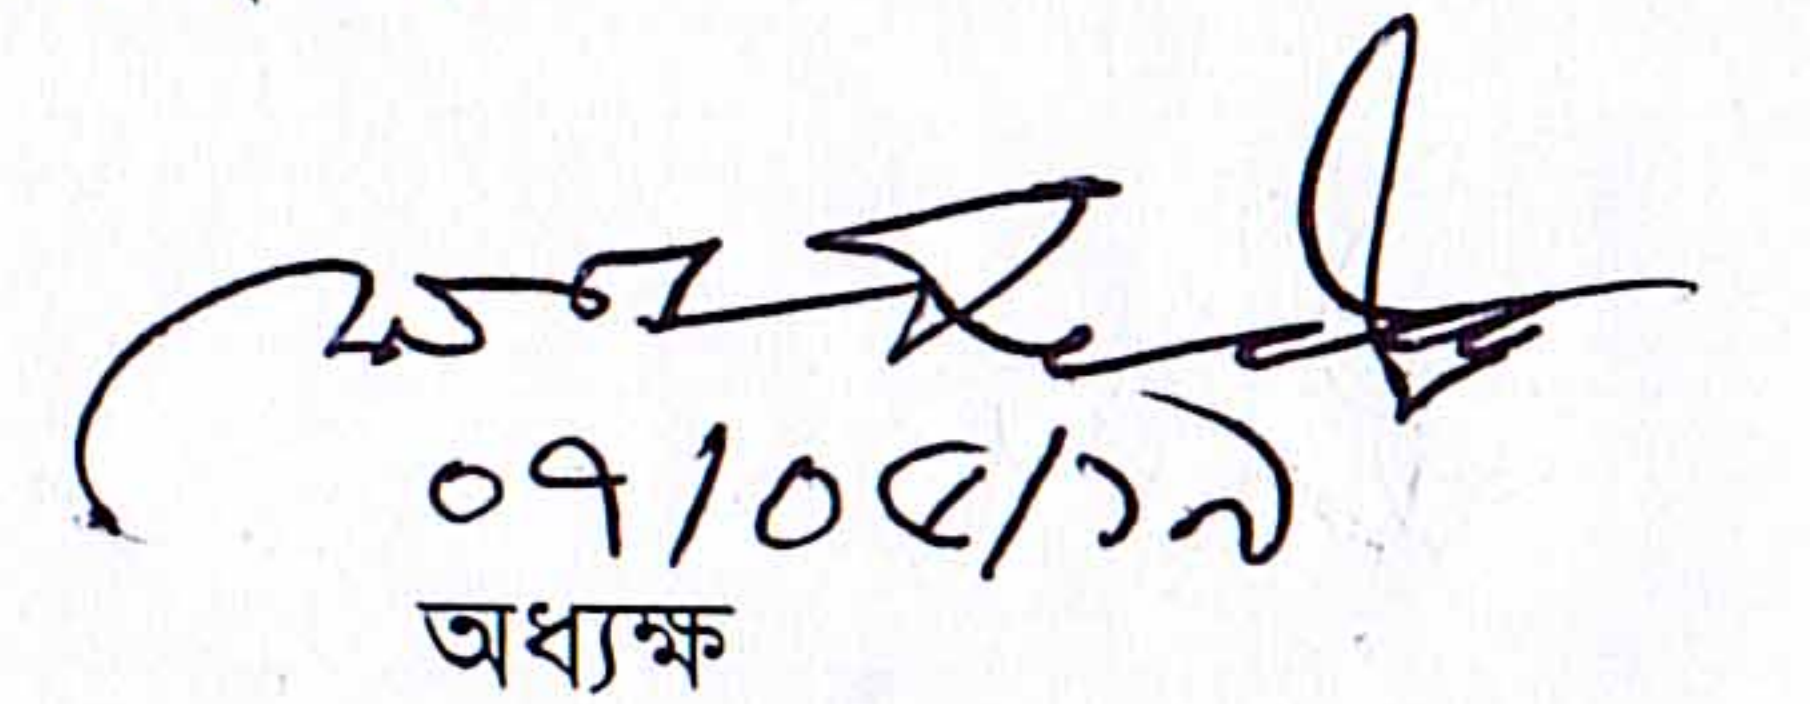 ০৭/০৫/১৯
অধ্যক্ষ